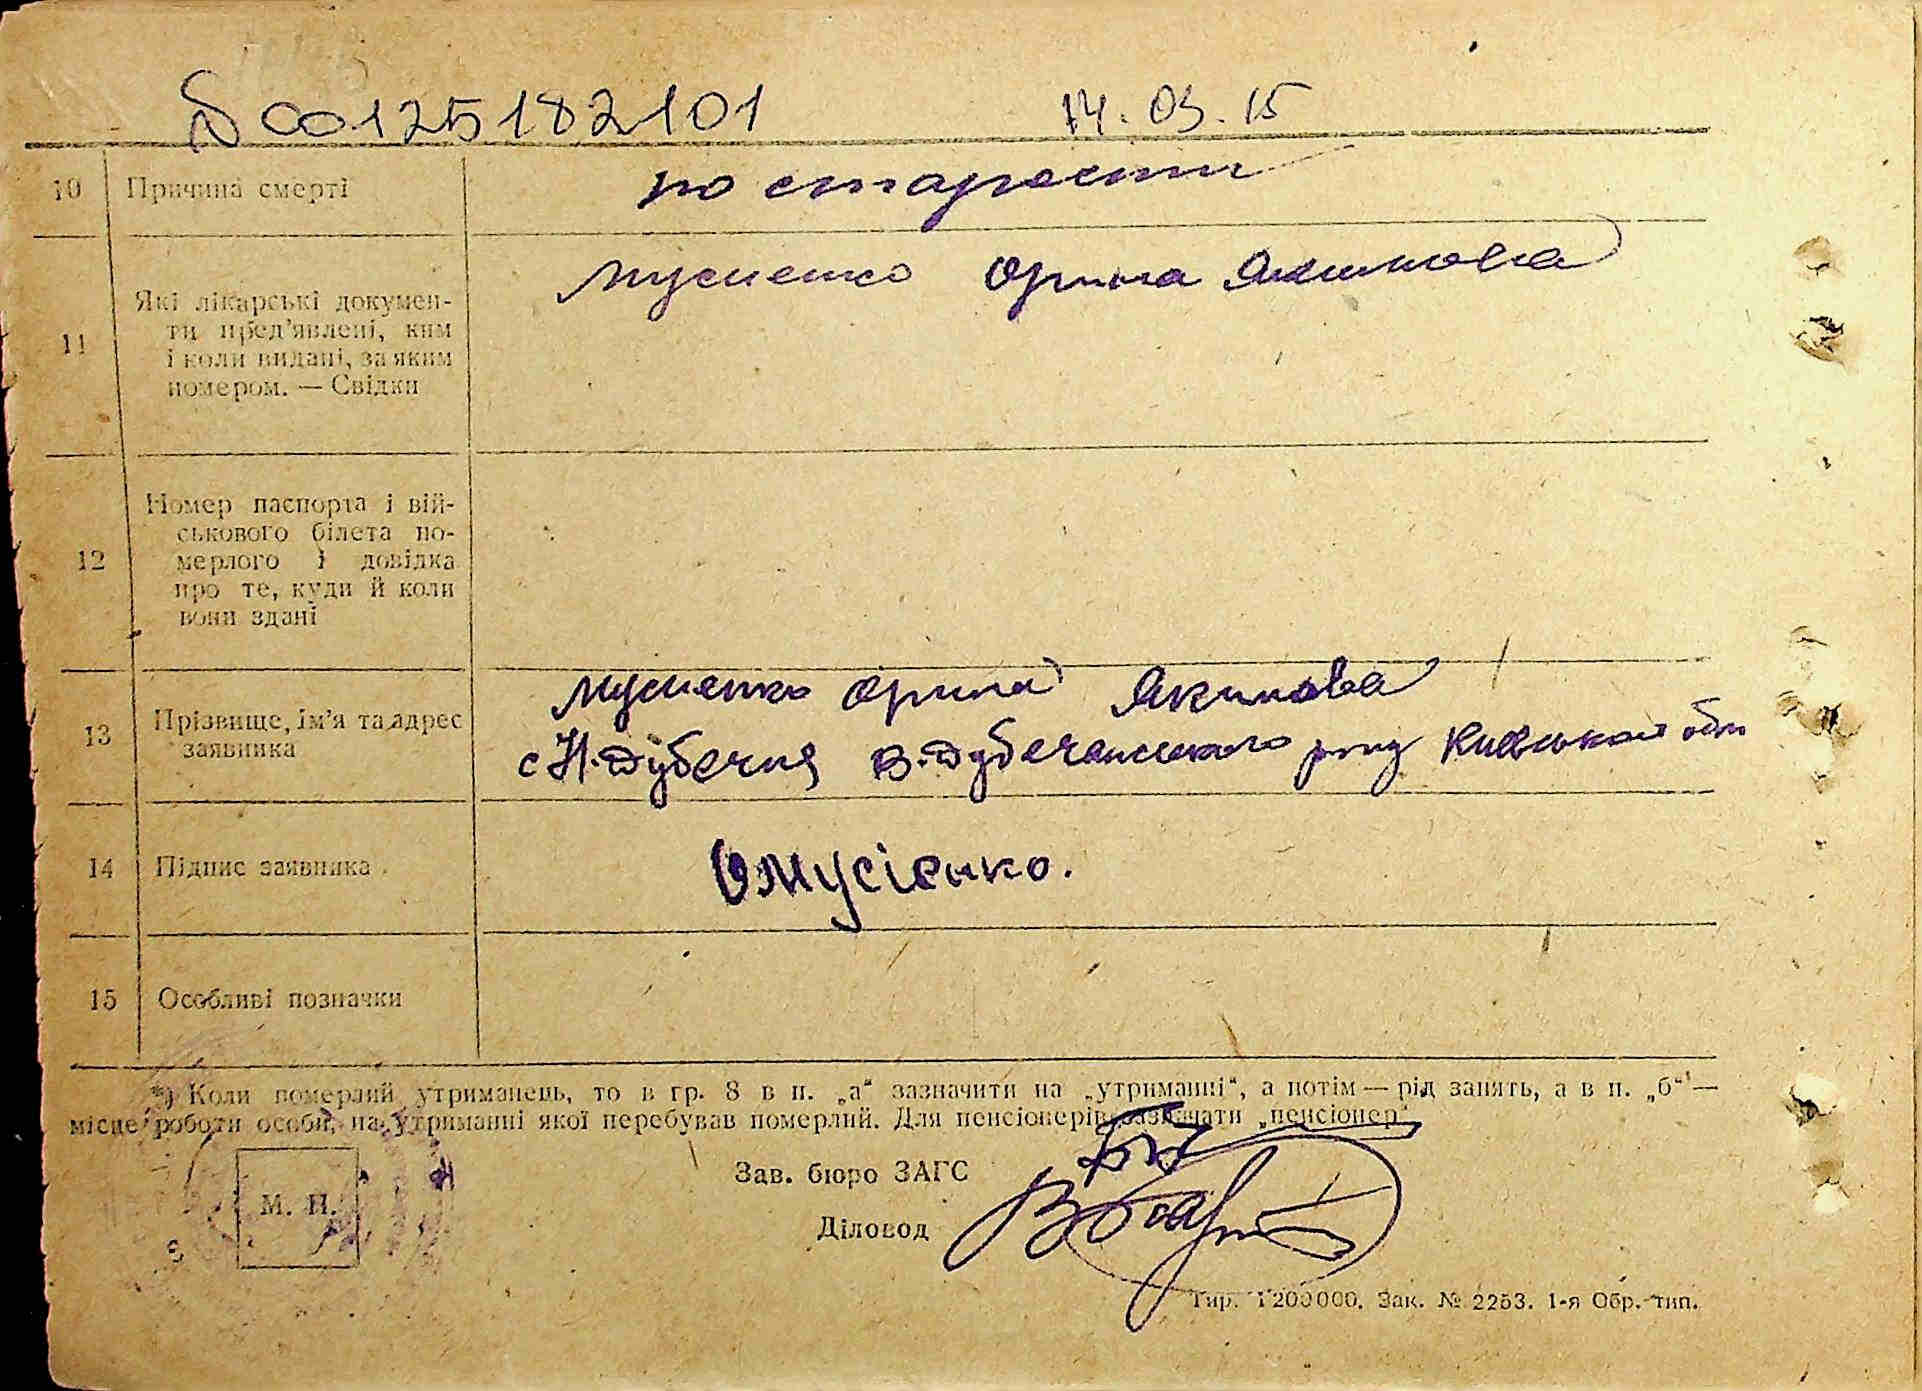 S00125182101 14.03.15
10 Причина смерті по старости
11 Які лікарські докумен-
ти пред'явлені, ким
і коли видані, за яким
номером. — Свідки
Мусиенко Орина Якимовна
12 Номер паспорта і вій-
ськового білета по-
мерлого і довідка
про те, куди й коли
вони здані
13 Прізвище, ім'я та адрес
заявника
Мусиенко Орина Якимовна
с Н. Дубечня В. Дубечанського р-ну Київської обл
14 Підпис заявника ОМусієнко.
15 Особливі позначки
*) Коли померлий утриманець, то в гр. 8 в п. „а“ зазначити на „утриманні“, а потім — рід занять, а в п. „б“ —
місце роботи особи, на утриманні якої перебував померлий. Для пенсіонерів зазначати „пенсіонер“.
Зав. бюро ЗАГС
М. П.
Діловод
Тир. 1200000. Зак. № 2253. 1-я Обр. тип.